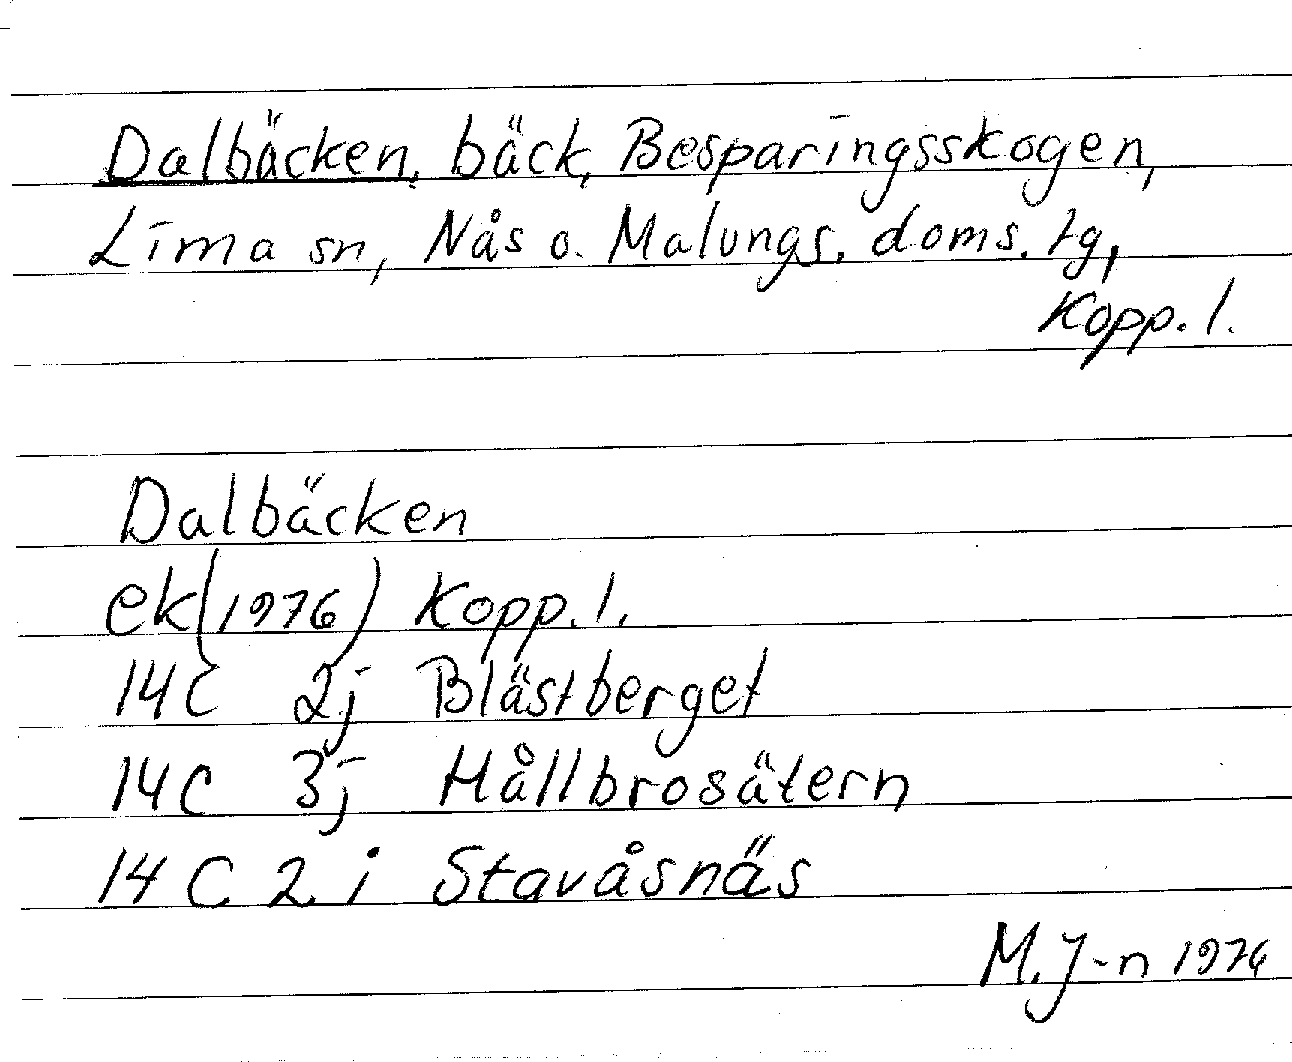 Dalbäcken, bäck, Besparingsskogen,
Lima sn, Nås o. Malungs. doms. tg,
Kopp. l.
Dalbäcken
ek(1976) Kopp. l.
14C 2j Blästberget
14C 3j Hållbrosätern
14C 2i Stavåsnäs
M. J-n 1976